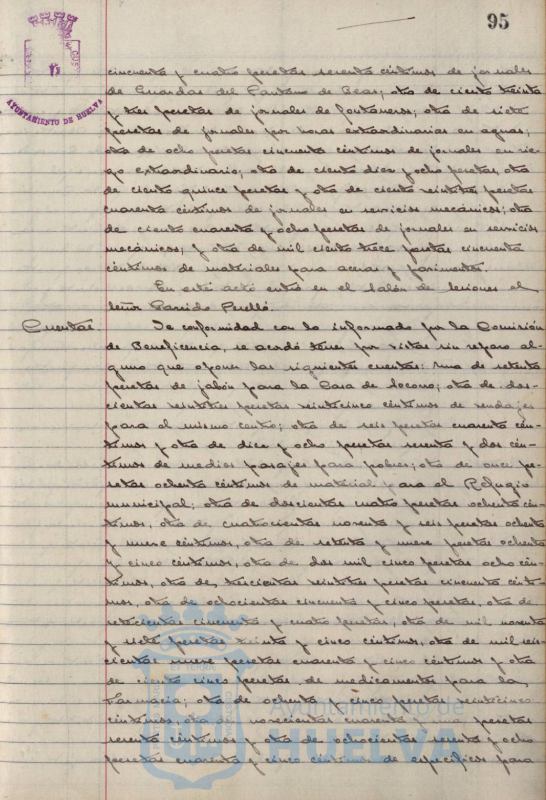 95
AYUNTAMIENTO DE HUELVA
cincuenta y cuatro pesetas sesenta céntimos de jornales
de Guardas del Pantano de Beas; otra de ciento treinta
y tres pesetas de jornales de fontaneros; otra de siete
pesetas de jornales por horas extraordinarias en aguas;
otra de ocho pesetas cincuenta céntimos de jornales en rie-
go extraordinario; otra de ciento diez y ocho pesetas, otra
de ciento quince pesetas y otra de ciento veintitres pesetas
cuarenta céntimos de jornales en servicios mecánicos; otra
de ciento cuarenta y ocho pesetas de jornales en servicios
mecánicos; y otra de mil ciento trece pesetas cincuenta
céntimos de materiales para aceras y pavimentos.
En este acto entró en el Salón de Sesiones el
Señor Garrido Perelló.
Cuentas.
De conformidad con lo informado por la Comisión
de Beneficencia, se acordó tener por vistas sin reparo al-
guno que oponer las siguientes cuentas: una de setenta
pesetas de jabón para la Casa de Socorro; otra de dos-
cientas veintitres pesetas veinticinco céntimos de vendajes
para el mismo centro; otra de seis pesetas cuarenta cén-
timos y otra de diez y ocho pesetas sesenta y dos cén-
timos de medios pasajes para pobres; otra de once pe-
setas ochenta céntimos de material para el Refugio
municipal; otra de doscientas cuatro pesetas ochenta cén-
timos, otra de cuatrocientas noventa y seis pesetas ochenta
y nueve céntimos, otra de setenta y nueve pesetas ochenta
y cinco céntimos, otra de dos mil cinco pesetas ocho cén-
timos, otra de trescientas veintitres pesetas cincuenta cénti-
mos, otra de ochocientas cincuenta y cinco pesetas, otra de
setecientas cincuenta y cuatro pesetas, otra de mil noventa
y siete pesetas treinta y cinco céntimos, otra de mil seis-
cientas nueve pesetas cuarenta y cinco céntimos y otra
de ciento cinco pesetas, de medicamentos para la
Farmacia; otra de ochenta y cinco pesetas veinticinco
céntimos, otra de novecientas cuarenta y una pesetas
sesenta céntimos y otra de ochocientas sesenta y ocho
pesetas cuarenta y cinco céntimos de específicos para
Ayuntamiento de
HUELVA